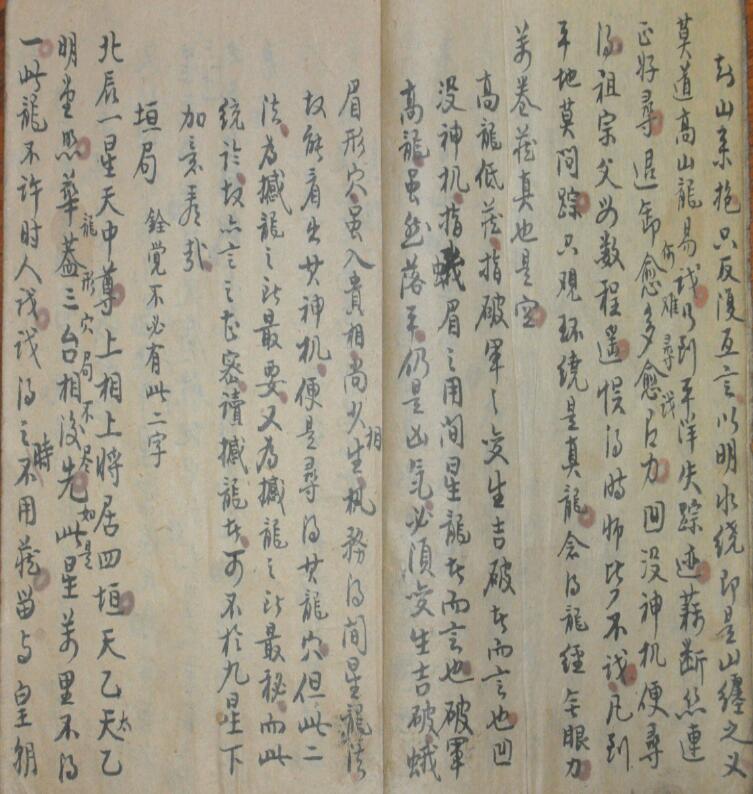 山抱只反復互言以明水绕即是山缠之义
莫道高山龍易识行到平洋失踪迹藕断丝連
何难尋识
正好尋退卸愈多愈有力凹没神机便尋
得祖宗父母数程遥悮得时师皆不识凡到
平地莫问踪只观环绕是真龍念得龍经無眼力
萬卷藏真也是空
高龍低藏指破軍之变生吉破者而言也凹
没神机指蛾眉之用间星龍者而言也破軍
高龍虽然落平仍是凶气必须变生吉破蛾
眉形穴虽入貴相尚少生机務得间星龍法
相
故能看出其神机便是尋得其龍穴但此二
法为撼龍之訣最要又为撼龍之訣最秘而此
统论故亦言之甚密读撼龍者可不於九星下
加意焉哉
垣局 銓觉不必有此二字
北辰一星天中尊上相上將居四垣天乙天乙
太
龍形穴局不尽如是
明堂照華蓋三台相後先此星萬里不得
時
一此龍不许时人识识得之不用藏留与皇朝